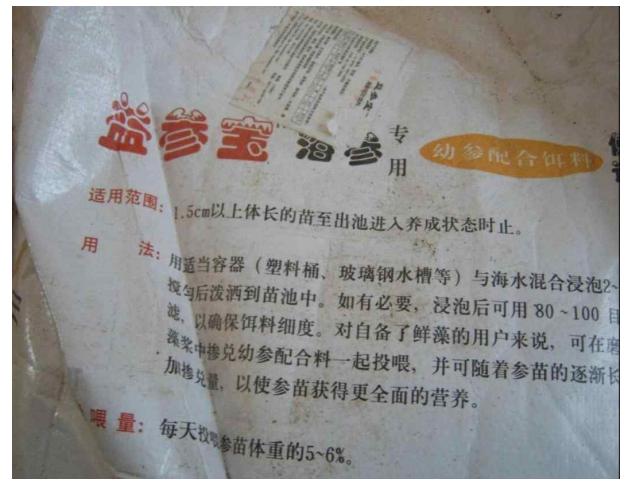 益参宝 海参专用
幼参配合饵料
适用范围：1.5cm以上体长的苗至出池进入养成状态时止。
用 法：用适当容器（塑料桶、玻璃钢水槽等）与海水混合浸泡2~
搅匀后泼洒到苗池中。如有必要，浸泡后可用80~100目
滤，以确保饵料细度。对自备了鲜藻的用户来说，可在磨
藻浆中掺兑幼参配合料一起投喂，并可随着参苗的逐渐长
加掺兑量，以使参苗获得更全面的营养。
喂量：每天投喂参苗体重的5~6%。